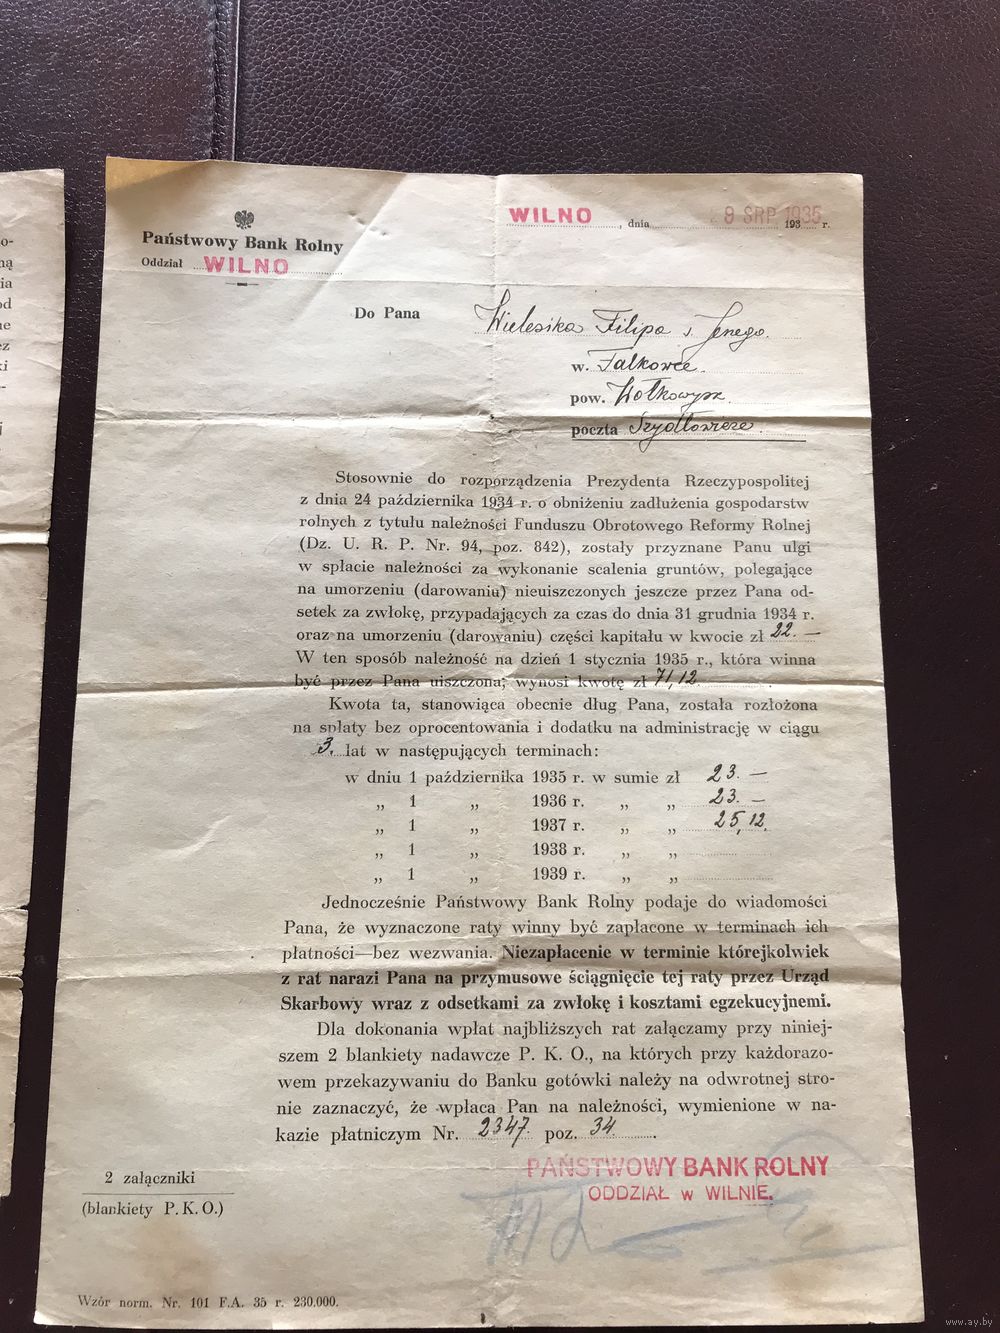 WILNO, dnia 29 SRP 1935 193 r.
Państwowy Bank Rolny
Oddział WILNO
Do Pana Wielesika Filipa s. Jenego.
w. Falkowce.
pow. Wołkowysk.
poczta Szydłowicze.
Stosownie do rozporządzenia Prezydenta Rzeczypospolitej
z dnia 24 października 1934 r. o obniżeniu zadłużenia gospodarstw
rolnych z tytułu należności Funduszu Obrotowego Reformy Rolnej
(Dz. U. R. P. Nr. 94, poz. 842), zostały przyznane Panu ulgi
w spłacie należności za wykonanie scalenia gruntów, polegające
na umorzeniu (darowaniu) nieuiszczonych jeszcze przez Pana od-
setek za zwłokę, przypadających za czas do dnia 31 grudnia 1934 r.
oraz na umorzeniu (darowaniu) części kapitału w kwocie zł 22.—
W ten sposób należność na dzień 1 stycznia 1935 r., która winna
być przez Pana uiszczona, wynosi kwotę zł 71,12.
Kwota ta, stanowiąca obecnie dług Pana, została rozłożona
na spłaty bez oprocentowania i dodatku na administrację w ciągu
3. lat w następujących terminach:
w dniu 1 października 1935 r. w sumie zł 23.—
„ 1 „ 1936 r. „ „ 23.—
„ 1 „ 1937 r. „ „ 25,12.
„ 1 „ 1938 r. „ „
„ 1 „ 1939 r. „ „
Jednocześnie Państwowy Bank Rolny podaje do wiadomości
Pana, że wyznaczone raty winny być zapłacone w terminach ich
płatności—bez wezwania. Niezapłacenie w terminie którejkolwiek
z rat narazi Pana na przymusowe ściągnięcie tej raty przez Urząd
Skarbowy wraz z odsetkami za zwłokę i kosztami egzekucyjnemi.
Dla dokonania wpłat najbliższych rat załączamy przy niniej-
szem 2 blankiety nadawcze P. K. O., na których przy każdorazo-
wem przekazywaniu do Banku gotówki należy na odwrotnej stro-
nie zaznaczyć, że wpłaca Pan na należności, wymienione w na-
kazie płatniczym Nr. 2347. poz. 34.
PAŃSTWOWY BANK ROLNY
ODDZIAŁ w WILNIE.
2 załączniki
(blankiety P. K. O.)
Wzór norm. Nr. 101 F.A. 35 r. 230.000.
www.ay.by